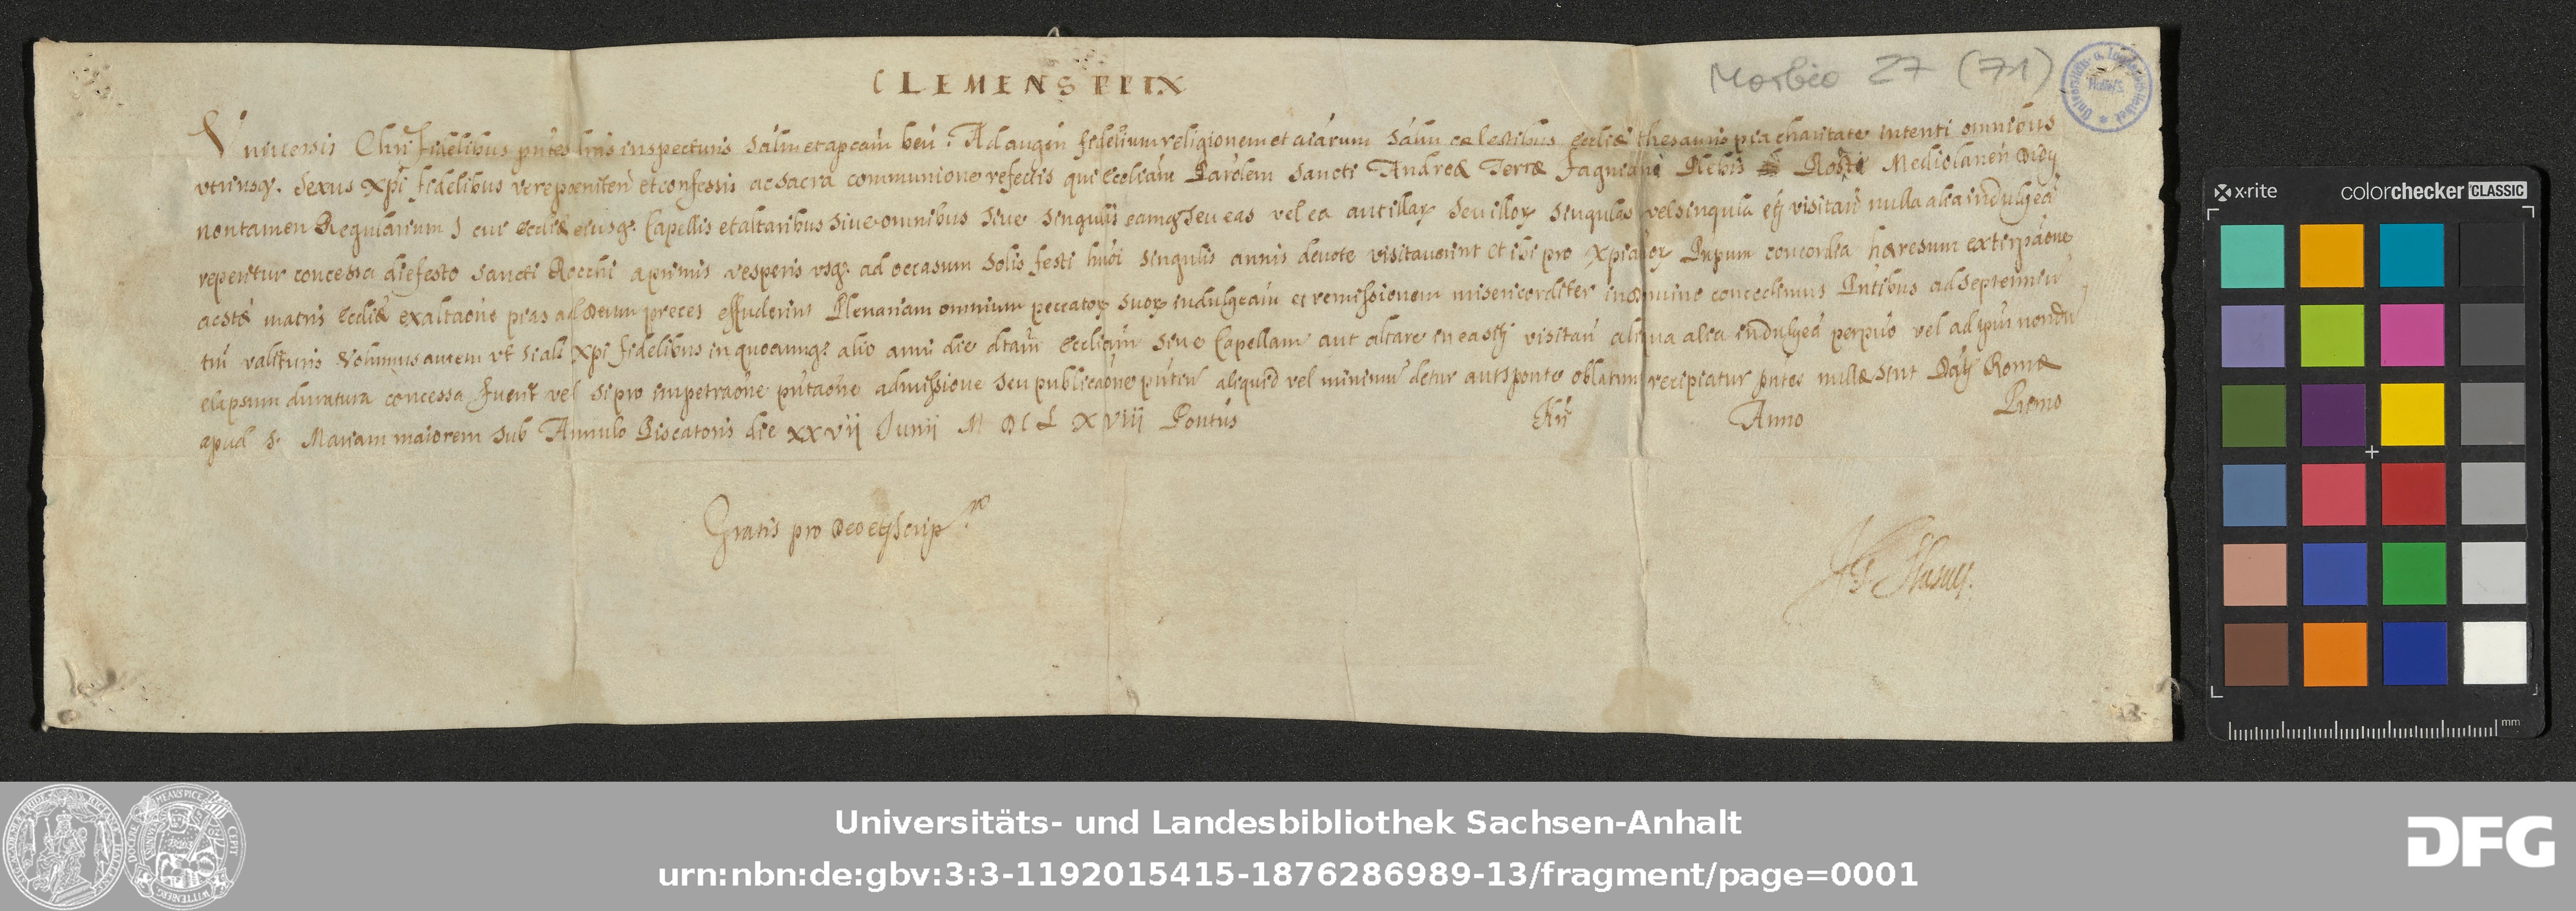 CLEMENS PP IX
Morbio 27 (71)
Universis Chri fidelibus pntes lras inspecturis Salm et apcam ben. Ad augen fidelium religionem et aiarum Salm cœlestibus Eccliæ thesauris pia charitate intenti omnibus
utriusq. Sexus Xpi fidelibus vere pœniten et confessis ac Sacra communione refectis qui Eccliam Parolem Sancti Andreæ Terræ Fagniani Plebis Mediolanen Dioy
non tamen Regularium cui Eccliæ eiusq. Capellis et altaribus Sive omnibus Sive Singulis eamq Seu eas vel ea aut illar Seu illor Singulas vel Singula etj visitan nulla alia indulgea
reperitur concessa die festo Sancti Rocchi a primis vesperis usq. ad occasum Solis festi hmoi Singulis annis devote visitaverint et ibi pro Xpianor Pnpum concordia hæresum extirpaone
ac stæ matris Eccliæ exaltaone pias ad Deum preces effuderint Plenariam omnium peccator Suor indulgeam et remissionem misericorditer in Dnino concedimus Pntibus ad Septennium
tm valituris Volumus autem ut Si als Xpi fidelibus in quocumq. alio anni die dtam Eccliam Sive Capellam aut altare in ea Sitj visitan aliqua alia indulgea perpuo vel ad tpus nondum
elapsum duratura concessa fuerit vel Si pro impetraone pntaone admissione Seu publicaone pntium aliquid vel minimum detur aut Sponte oblatum recipiatur pntes nullæ Sint Datj Romæ
apud S. Mariam maiorem Sub Annulo Piscatoris die XXVij Junij MDCLXViii Pontus Nri Anno Primo
Gratis pro Deo etj Scrip.ra
Universitäts- und Landesbibliothek Sachsen-Anhalt
urn:nbn:de:gbv:3:3-1192015415-1876286989-13/fragment/page=0001
DFG
x·rite colorchecker CLASSIC
mm